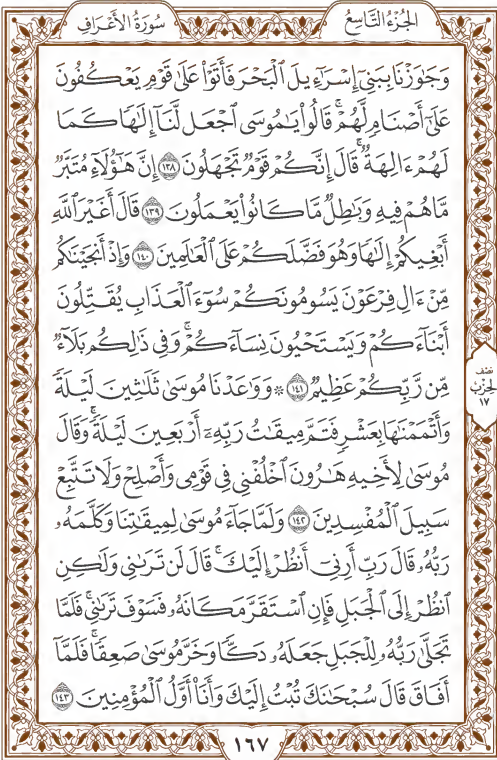 سُورَةُ الأَعْرَافِ
الجُزْءُ التَّاسِعُ
وَجَٰوَزْنَا بِبَنِيٓ إِسْرَٰٓءِيلَ ٱلْبَحْرَ فَأَتَوْا۟ عَلَىٰ قَوْمٍ يَعْكُفُونَ
عَلَىٰٓ أَصْنَامٍ لَّهُمْ ۚ قَالُوا۟ يَٰمُوسَى ٱجْعَل لَّنَآ إِلَٰهًا كَمَا
لَهُمْ ءَالِهَةٌ ۚ قَالَ إِنَّكُمْ قَوْمٌ تَجْهَلُونَ ١٣٨ إِنَّ هَٰٓؤُلَآءِ مُتَبَّرٌ
مَّا هُمْ فِيهِ وَبَٰطِلٌ مَّا كَانُوا۟ يَعْمَلُونَ ١٣٩ قَالَ أَغَيْرَ ٱللَّهِ
أَبْغِيكُمْ إِلَٰهًا وَهُوَ فَضَّلَكُمْ عَلَى ٱلْعَٰلَمِينَ ١٤٠ وَإِذْ أَنجَيْنَٰكُم
مِّنْ ءَالِ فِرْعَوْنَ يَسُومُونَكُمْ سُوٓءَ ٱلْعَذَابِ يُقَتِّلُونَ
أَبْنَآءَكُمْ وَيَسْتَحْيُونَ نِسَآءَكُمْ ۚ وَفِى ذَٰلِكُم بَلَآءٌ
مِّن رَّبِّكُمْ عَظِيمٌ ١٤١ ۞ وَوَٰعَدْنَا مُوسَىٰ ثَلَٰثِينَ لَيْلَةً
وَأَتْمَمْنَٰهَا بِعَشْرٍ فَتَمَّ مِيقَٰتُ رَبِّهِۦٓ أَرْبَعِينَ لَيْلَةً ۚ وَقَالَ
مُوسَىٰ لِأَخِيهِ هَٰرُونَ ٱخْلُفْنِى فِى قَوْمِى وَأَصْلِحْ وَلَا تَتَّبِعْ
سَبِيلَ ٱلْمُفْسِدِينَ ١٤٢ وَلَمَّا جَآءَ مُوسَىٰ لِمِيقَٰتِنَا وَكَلَّمَهُۥ
رَبُّهُۥ قَالَ رَبِّ أَرِنِىٓ أَنظُرْ إِلَيْكَ ۚ قَالَ لَن تَرَىٰنِى وَلَٰكِنِ
ٱنظُرْ إِلَى ٱلْجَبَلِ فَإِنِ ٱسْتَقَرَّ مَكَانَهُۥ فَسَوْفَ تَرَىٰنِى ۚ فَلَمَّا
تَجَلَّىٰ رَبُّهُۥ لِلْجَبَلِ جَعَلَهُۥ دَكًّا وَخَرَّ مُوسَىٰ صَعِقًا ۚ فَلَمَّآ
أَفَاقَ قَالَ سُبْحَٰنَكَ تُبْتُ إِلَيْكَ وَأَنَا۠ أَوَّلُ ٱلْمُؤْمِنِينَ ١٤٣
نصف
الحزب
١٧
١٦٧